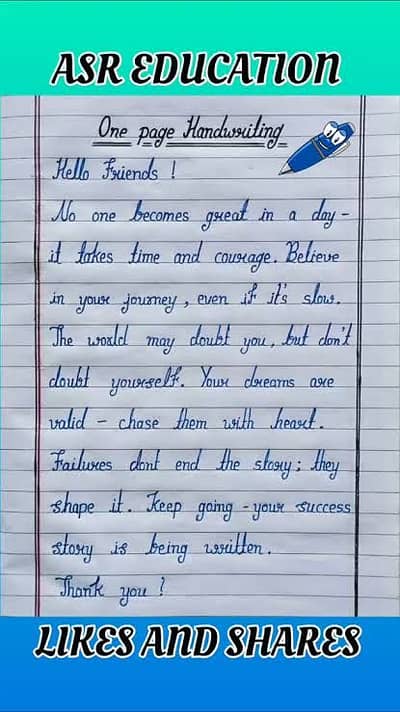 ASR EDUCATION
One page Handwriting
Hello Friends !
No one becomes great in a day -
it takes time and courage. Believe
in your journey, even if it's slow.
The world may doubt you, but don't
doubt yourself. Your dreams are
valid - chase them with heart.
Failures dont end the story; they
shape it. Keep going - your success
story is being written.
Thank you !
LIKES AND SHARES